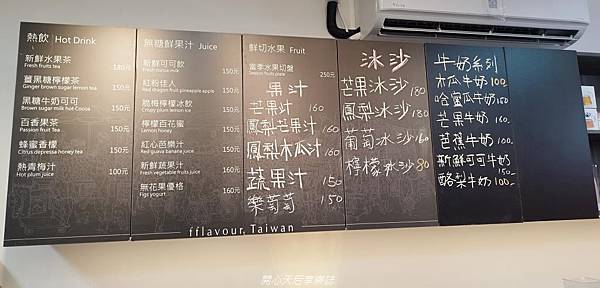 熱飲 Hot Drink
新鮮水果茶 180元
Fresh fruits tea
薑黑糖檸檬茶 150元
Ginger brown sugar lemon tea
黑糖牛奶可可 150元
Brown sugar milk hot Cocoa
百香果茶 150元
Passion fruit Tea
蜂蜜香檬 150元
Citrus depressa honey tea
熱青梅汁 100元
Hot plum juice
無糖鮮果汁 Juice
新鮮可可飲 150元
Fresh cocoa milk
紅粉佳人 150元
Red dragon fruit pineapple apple
脆梅檸檬冰飲 150元
Crispy plum lemon ice
檸檬百花蜜 150元
Lemon honey
紅心芭樂汁 150元
Red guava banana juice
新鮮蔬果汁 160元
Fresh vegetable fruits juice
無花果優格 160元
Figs yogurt
鮮切水果 Fruit
當季水果切盤 250元
Season fruits plate
果汁
芒果汁 160
鳳梨芒果汁 160
鳳梨木瓜汁 160
蔬果汁 150
樂萄萄 150
冰沙
芒果冰沙 180
鳳梨冰沙 180
葡萄冰沙 160
檸檬冰沙 80
牛奶系列
木瓜牛奶 100
哈蜜瓜牛奶 150
芒果牛奶 160
芭蕉牛奶
新鮮可可牛奶 150
酪梨牛奶 100
fflavour, Taiwan
開心天后享樂誌